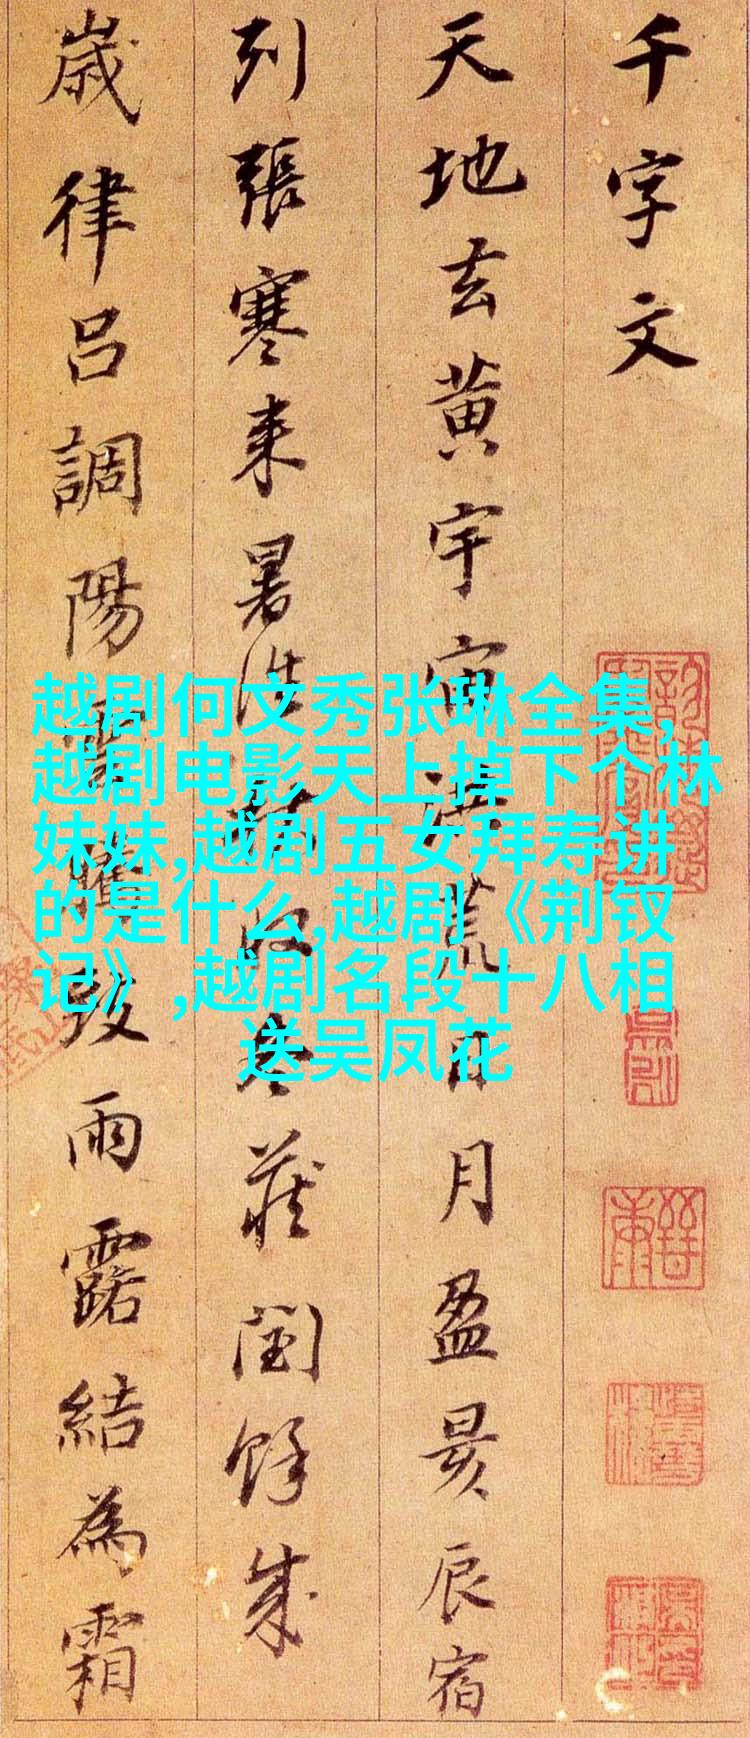 千字文
天地玄黄宇宙洪荒日月盈昃辰宿
列張寒来暑往秋收冬蔵閏餘成
歲律吕調陽雲騰致雨露結為霜
越剧何文秀张琳全集,
越剧电影天上掉下个林
妹妹,越剧五女拜寿讲
的是什么,越剧《荆钗
记》,越剧名段十八相
送吴凤花